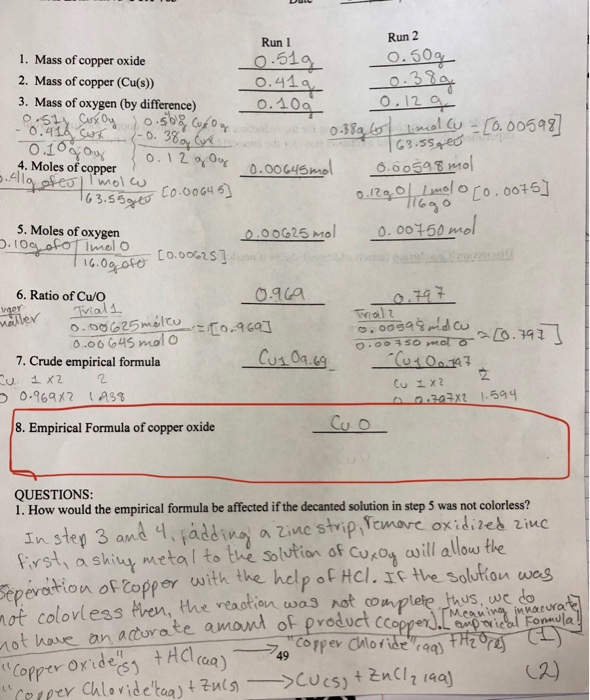 Run 1 Run 2
1. Mass of copper oxide 0.51g 0.50g
2. Mass of copper (Cu(s)) 0.41g 0.38g
3. Mass of oxygen (by difference) 0.10g 0.12g
0.51g CuxOy 0.50g CuxOy
- 0.41g Cux - 0.38g Cux 0.38g Cu | 1 mol Cu = [0.00598]
0.10g Oy 0.12g Oy 63.55g Cu
4. Moles of copper 0.00645mol 0.00598mol
0.41g of Cu | 1 mol Cu [0.00645] 0.12g O | 1 mol O [0.0075]
63.55g Cu 16g O
5. Moles of oxygen 0.00625 mol 0.00750 mol
0.10g of O | 1mol O [0.00625]
16.0g of O
6. Ratio of Cu/O 0.969 0.797
Trial 1 Trial 2
0.00625mol Cu = [0.969] 0.00598mol Cu = [0.797]
0.00645 mol O 0.00750 mol O
7. Crude empirical formula Cu1 O0.969 Cu1 O0.797
Cu 1 x2 2 Cu 1 x2 2
O 0.969x2 1.938 O 0.797x2 1.594
8. Empirical Formula of copper oxide CuO
QUESTIONS:
1. How would the empirical formula be affected if the decanted solution in step 5 was not colorless?
In step 3 and 4, adding a zinc strip, remove oxidized zinc
first, a shiny metal to the solution of CuxOy will allow the
Seperation of copper with the help of HCl. If the solution was
not colorless then, the reaction was not complete thus, we do
not have an accurate amount of product (copper). [Meaning innacurate emperical Formula!]
"Copper Oxide"(s) + HCl(aq) → "Copper Chloride"(aq) + H2O(l) (1)
49
"Copper Chloride"(aq) + Zn(s) → Cu(s) + ZnCl2(aq) (2)